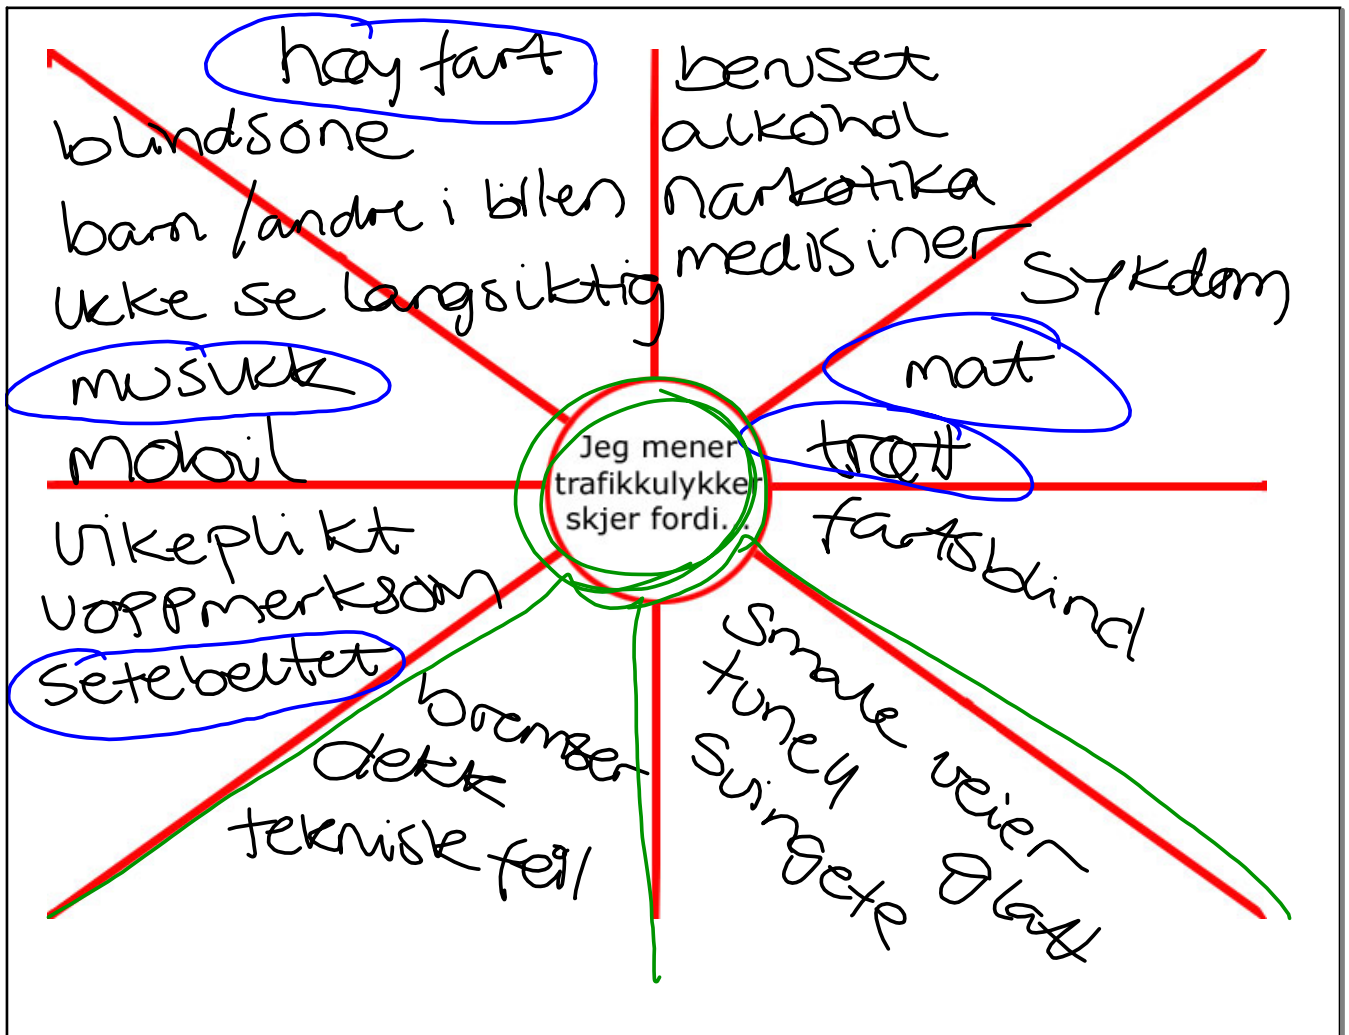 høy fart
blindsone
barn / andre i bilen
ikke se langsiktig
musikk
mobil
vikeplikt
uoppmerksom
setebeltet
beruset
alkohol
narkotika
medisiner
sykdom
mat
trøtt
fartsblind
Jeg mener
trafikkulykker
skjer fordi...
bremser
dekk
teknisk feil
smale veier
tunell glatt
svingete